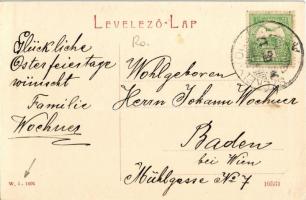 LEVELEZŐ-LAP
Ro.
Glückliche
Osterfeiestage
wünscht
Familie
Wochner
Wohlgeboren
Herrn Johann Wochner
Baden
bei Wien
Mühlgasse No 7